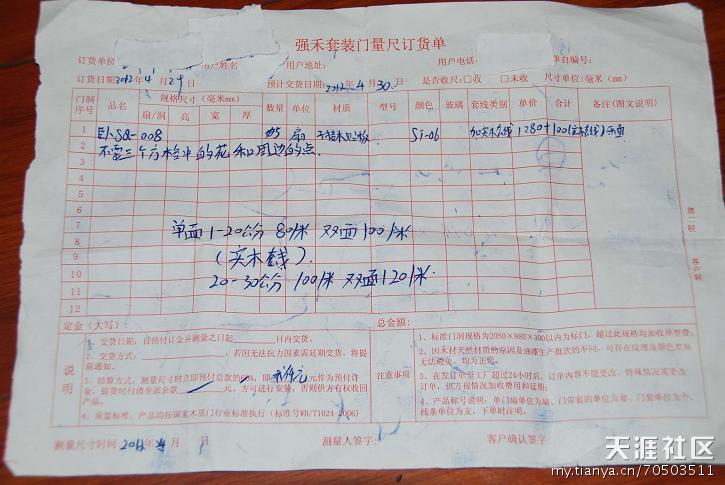 强禾套装门量尺订货单
订货单位 用户姓名 用户地址: 用户电话: 单自编号:
订货日期2012年4月29 预计交货日期2012年4月30日 是否收尺:□收 □未收 尺寸单位:毫米(mm)
门洞序号 品名 规格尺寸(毫米mm) 数量 单位 材质 型号 颜色 玻璃 套线类别 单价 合计 备注(图文说明)
扇/洞 高 宽 厚
1 -SQ-008 扇 SJ-06 加实木套线 1280+100
2 不要三个方格中的花和四周边的点.
3
4
5
6
7 单面1-20公分 80/米 双面100/米
8 (实木套线).
9
10 20-30公分 100/米 双面120/米
11
12
第二联 客户联
定金(大写): 总金额:
说明
1、交货日期:自预付订金并测量之日起 日内交货。
2、交货方式: ,若因无法抗力因素需延期交货,将提前通知。
3、结算方式:测量尺寸时立即预付总款的 %,即 元作为预付订金,提货时付清全部余款 ,方可进行安装,否则供方有权收回产品。
4、质量标准:产品均按国家木质门行业标准执行(标准号WB/T1024-2006)
注意事项
1、标准门洞规格为2050×880×300以内为标门,超过此规格均加收异型费;
2、因木材天然材质的原因及油漆生产批次的不同,可存在纹理及颜色差异无法避免,均为正常。
3、在发订单至工厂超过24小时后,订单内容不能更改,特殊情况需要改订单,供方按情况加收费用和延期;
4、产品称号说明:单门扇单位为扇、门带套的单位为套、门套单位为个、线条单位为支,下单时注明。
测量尺寸时间2012年4月1 测量人签字: 客户确认签字
天涯社区
my.tianya.cn/70503511